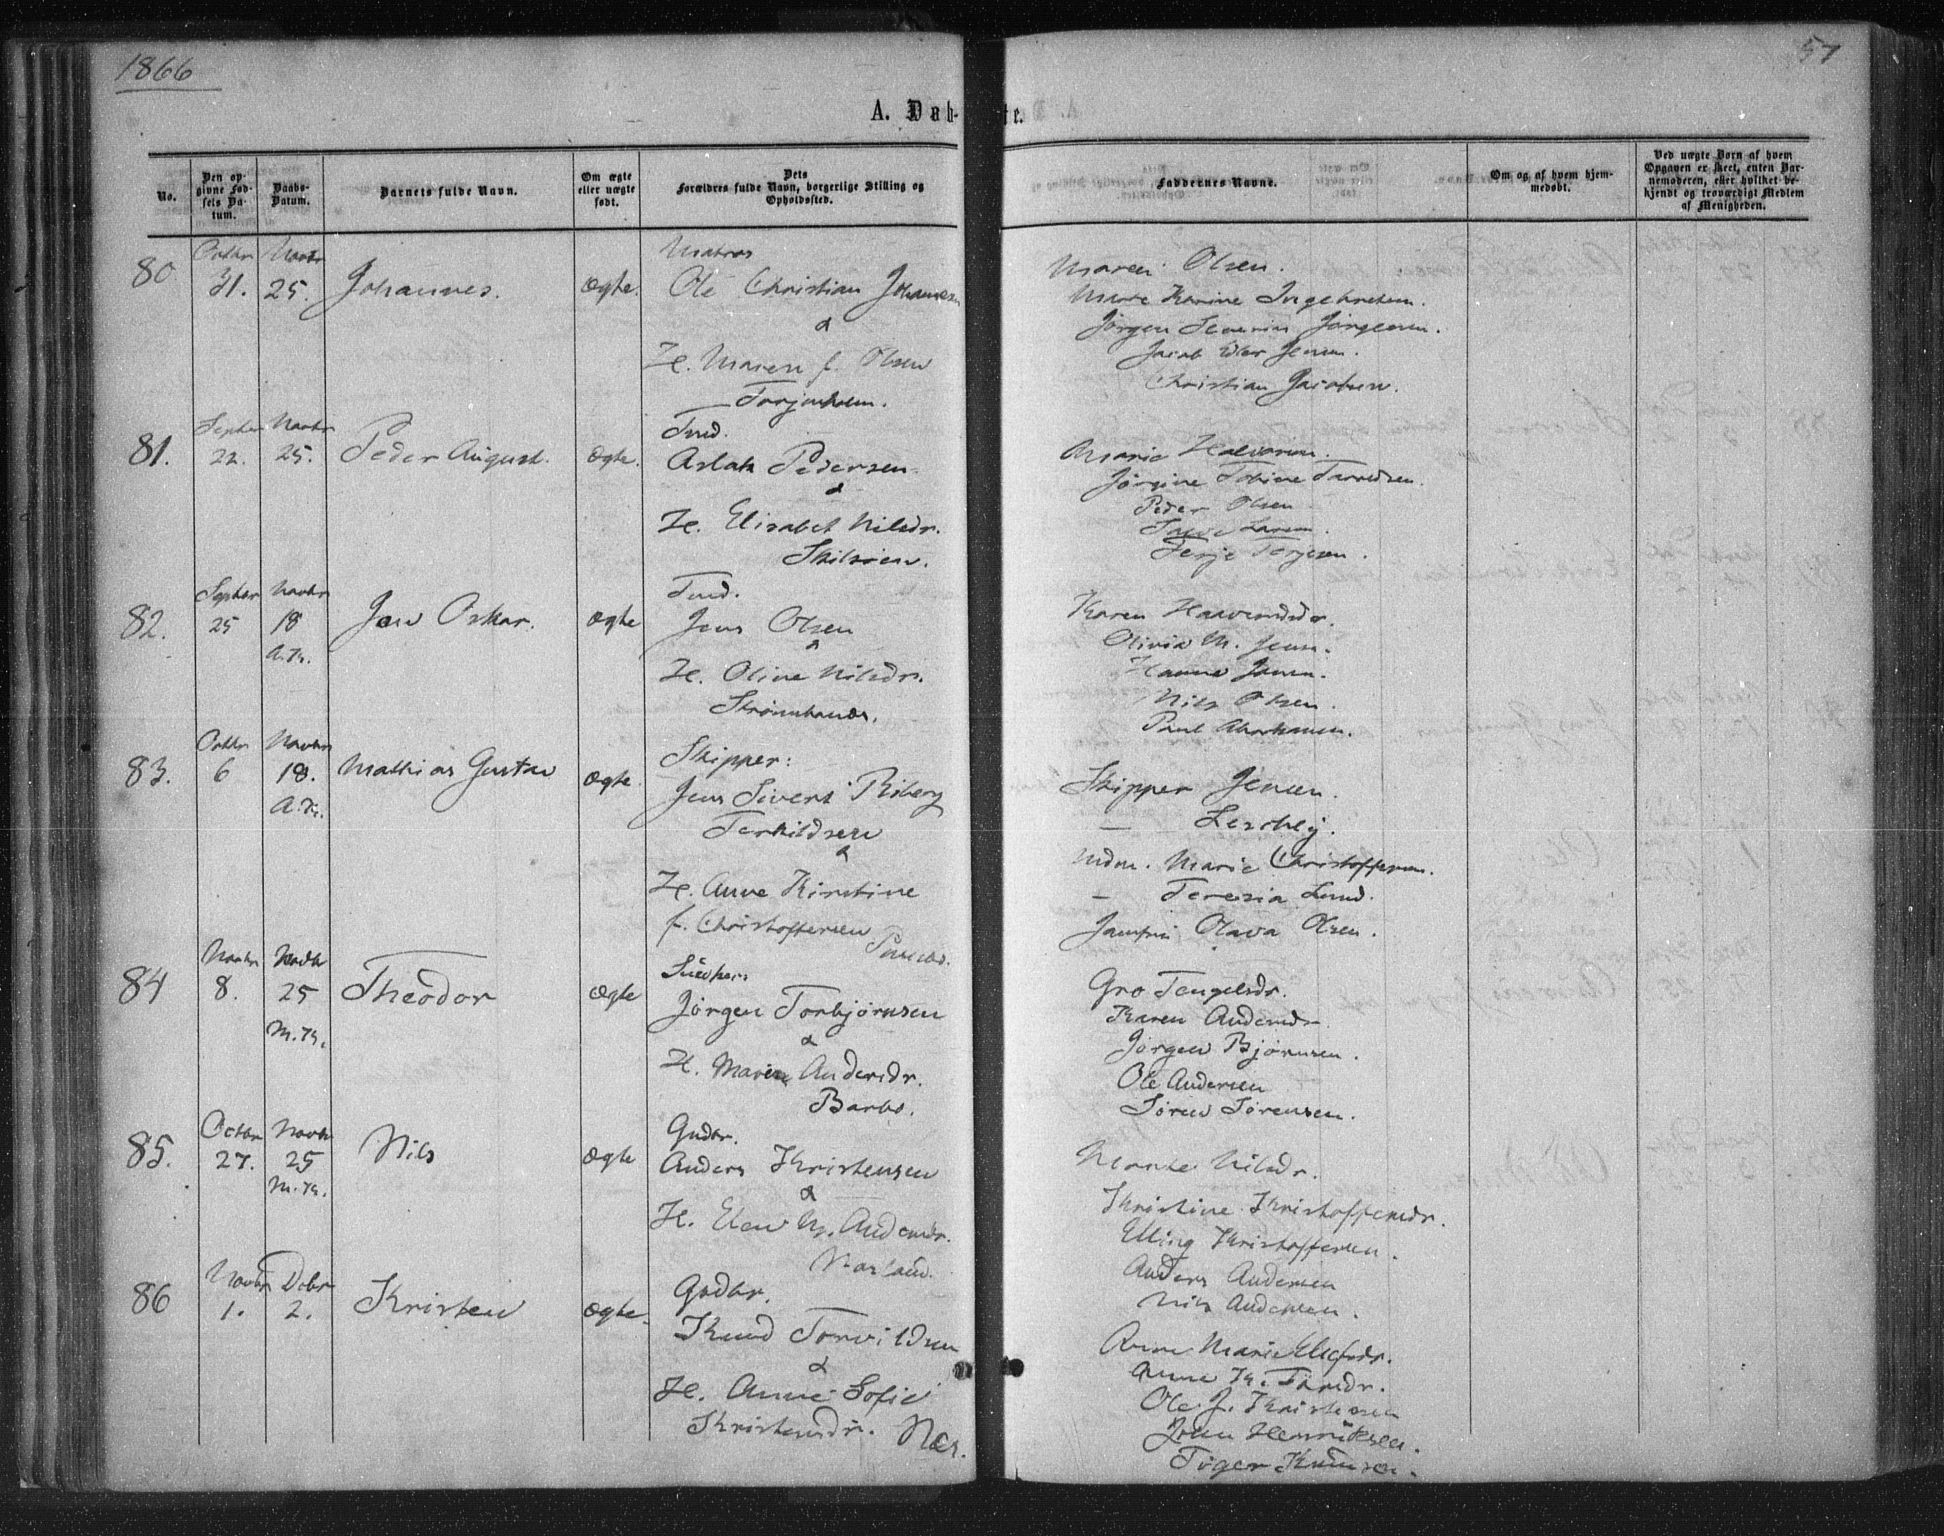 1866
57
A. Døb-
te.
No.
Den op-
givne Fød-
sels Da-
tum.
Daabs-
Datum.
Barnets fulde Navn.
Om ægte
eller uægte
født.
Dets
Forældres fulde Navn, borgerlige Stilling og
Opholdssted.
Faddernes Navne.
Om og af hvem hjem-
medøbt.
Ved uægte Børn af hvem
Opgaven er skeet, enten Bar-
nemoderen, eller hvilket be-
kjendt og troværdigt Medlem
af Menigheden.
80
Octbr
31.
Novbr
25.
Johannes.
Ægte.
Matros
Ole Christian Johannesen
&
H. Maren f. Olsen
Torjenholm.
Maren Olsen.
Maren Karine Ingebretsen.
Jørgen Severin Jørgensen.
Jacob Jensen.
Christian Jacobsen.
81.
Septbr
22.
Novbr
25.
Peder August.
Ægte.
Tmd.
Aslak Pedersen
&
H. Elisabet Nilsdr.
Skilsøen.
Marie Halvorsen.
Jørgine Tobine
Peder Olsen
Larsen.
Terje Terjesen.
82.
Septbr
25
Novbr
18
A.K.
Jens Oskar.
Ægte
Tmd.
Jens Olsen
&
H. Oline Nilsdr.
Strømsbunds.
Karen
Olivia M. Jensen.
Hanna Jensen.
Nils Olsen.
Paul Abrahamsen.
83.
Octbr
6
Novbr
18.
A.K.
Mathias Gustav
Ægte.
Skipper:
Jens Sivert Riberg
Terkildsen
&
H. Anne Kirstine
f. Christoffersen
Skipper Jensen.
—
Mdm. Marie Christoffersen.
– Teresia Lund.
Jomfru Olava Olsen.
84
Novbr
8.
Novbr
25
M.K.
Theodor
Ægte
Snedker
Jørgen Torbjørnsen
&
H. Maren Andersdr.
Barbo.
Gro Tengelsdr.
Karen Andersdr.
Jørgen Bjørnsen.
Ole Andersen
Søren Sørensen.
85.
Octbr
27.
Novbr
25
M.K.
Nils
Ægte
Gmdbr.
Anders Kristensen
&
H. Elen M. Andersdr.
Marte Nilsdr.
Kristine Kristoffersdr.
Elling Kristoffersen.
Anders Andersen
Nils Andersen.
86
Novbr
1.
Debr
2.
Kristen
Ægte.
Gmdbr.
Knud Torvildsen
&
H. Anne Sofie
Kristensdr. Næs.
Anne Marie
Anne K.
Ole J. Kristensen
Jens Henriksen.
Tøger Knudsen.